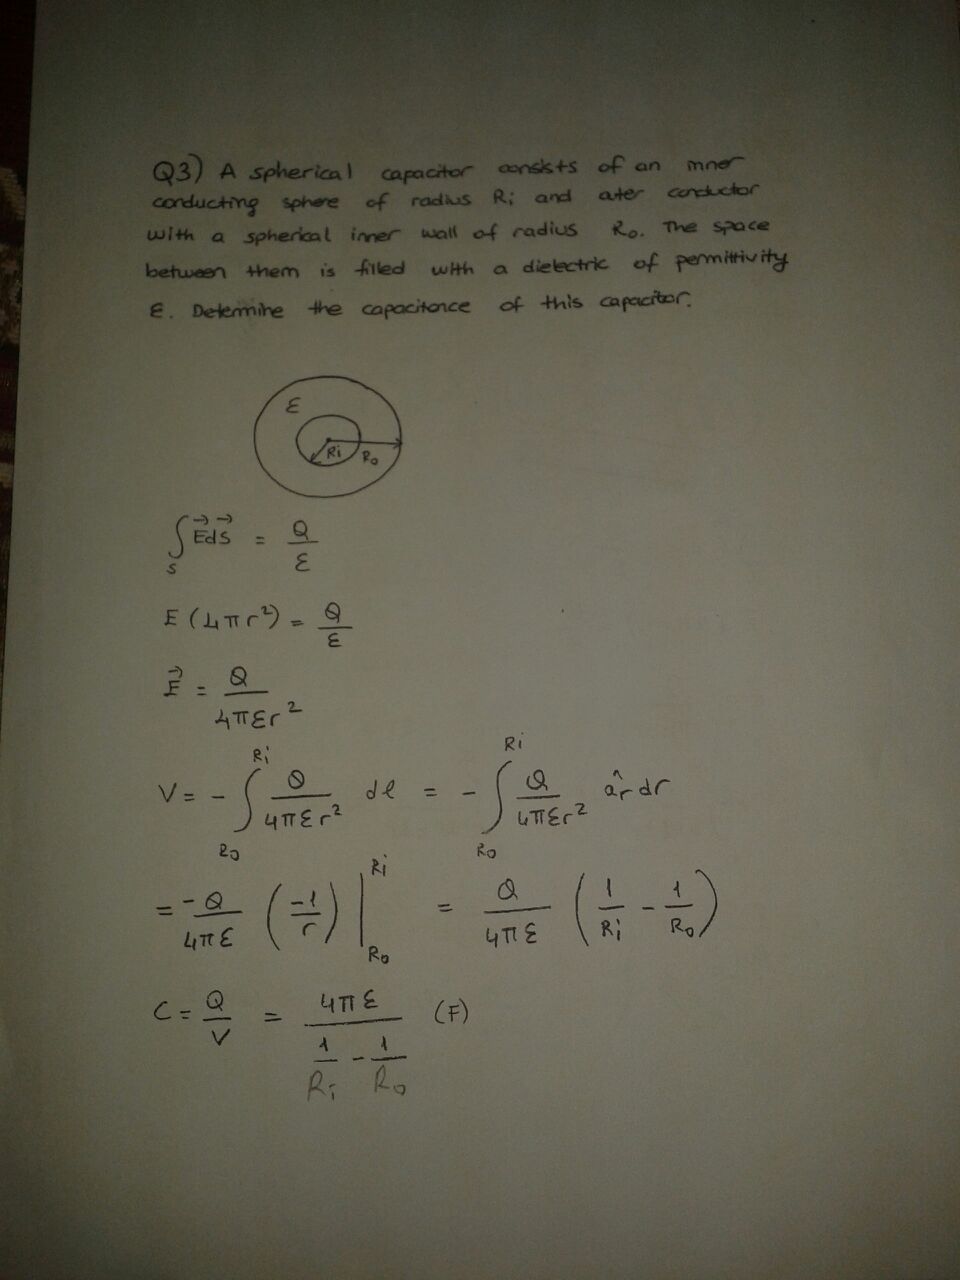 Q3) A spherical capacitor consists of an inner
conducting sphere of radius Ri and outer conductor
with a spherical inner wall of radius Ro. The space
between them is filled with a dielectric of permittivity
ε. Determine the capacitance of this capacitor.
ε
Ri Ro
∫s E⃗ds⃗ = Q/ε
E (4πr²) = Q/ε
E⃗ = Q/4πεr²
V = - ∫Ro^Ri Q/4πεr² dl = - ∫Ro^Ri Q/4πεr² âr dr
= -Q/4πε (-1/r) |Ro^Ri = Q/4πε (1/Ri - 1/Ro)
C = Q/V = 4πε/(1/Ri - 1/Ro) (F)